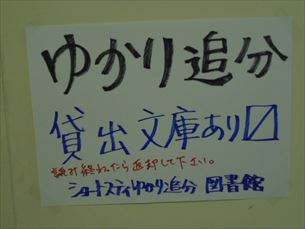 ゆかり追分
貸出文庫あり〼
読み終わったら返却して下さい。
ショートスティゆかり追分 図書館